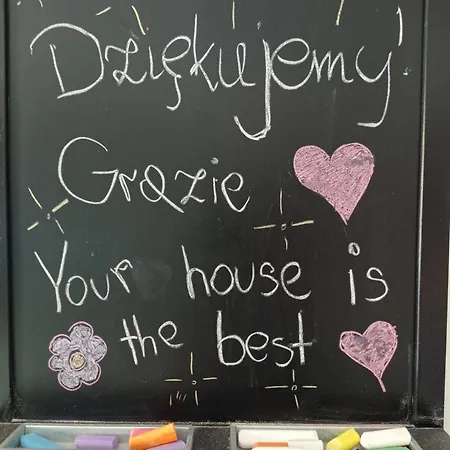 Dziękujemy
Grazie
Your house is
the best